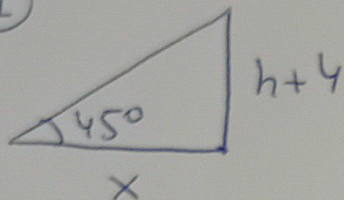 45°
h+4
x